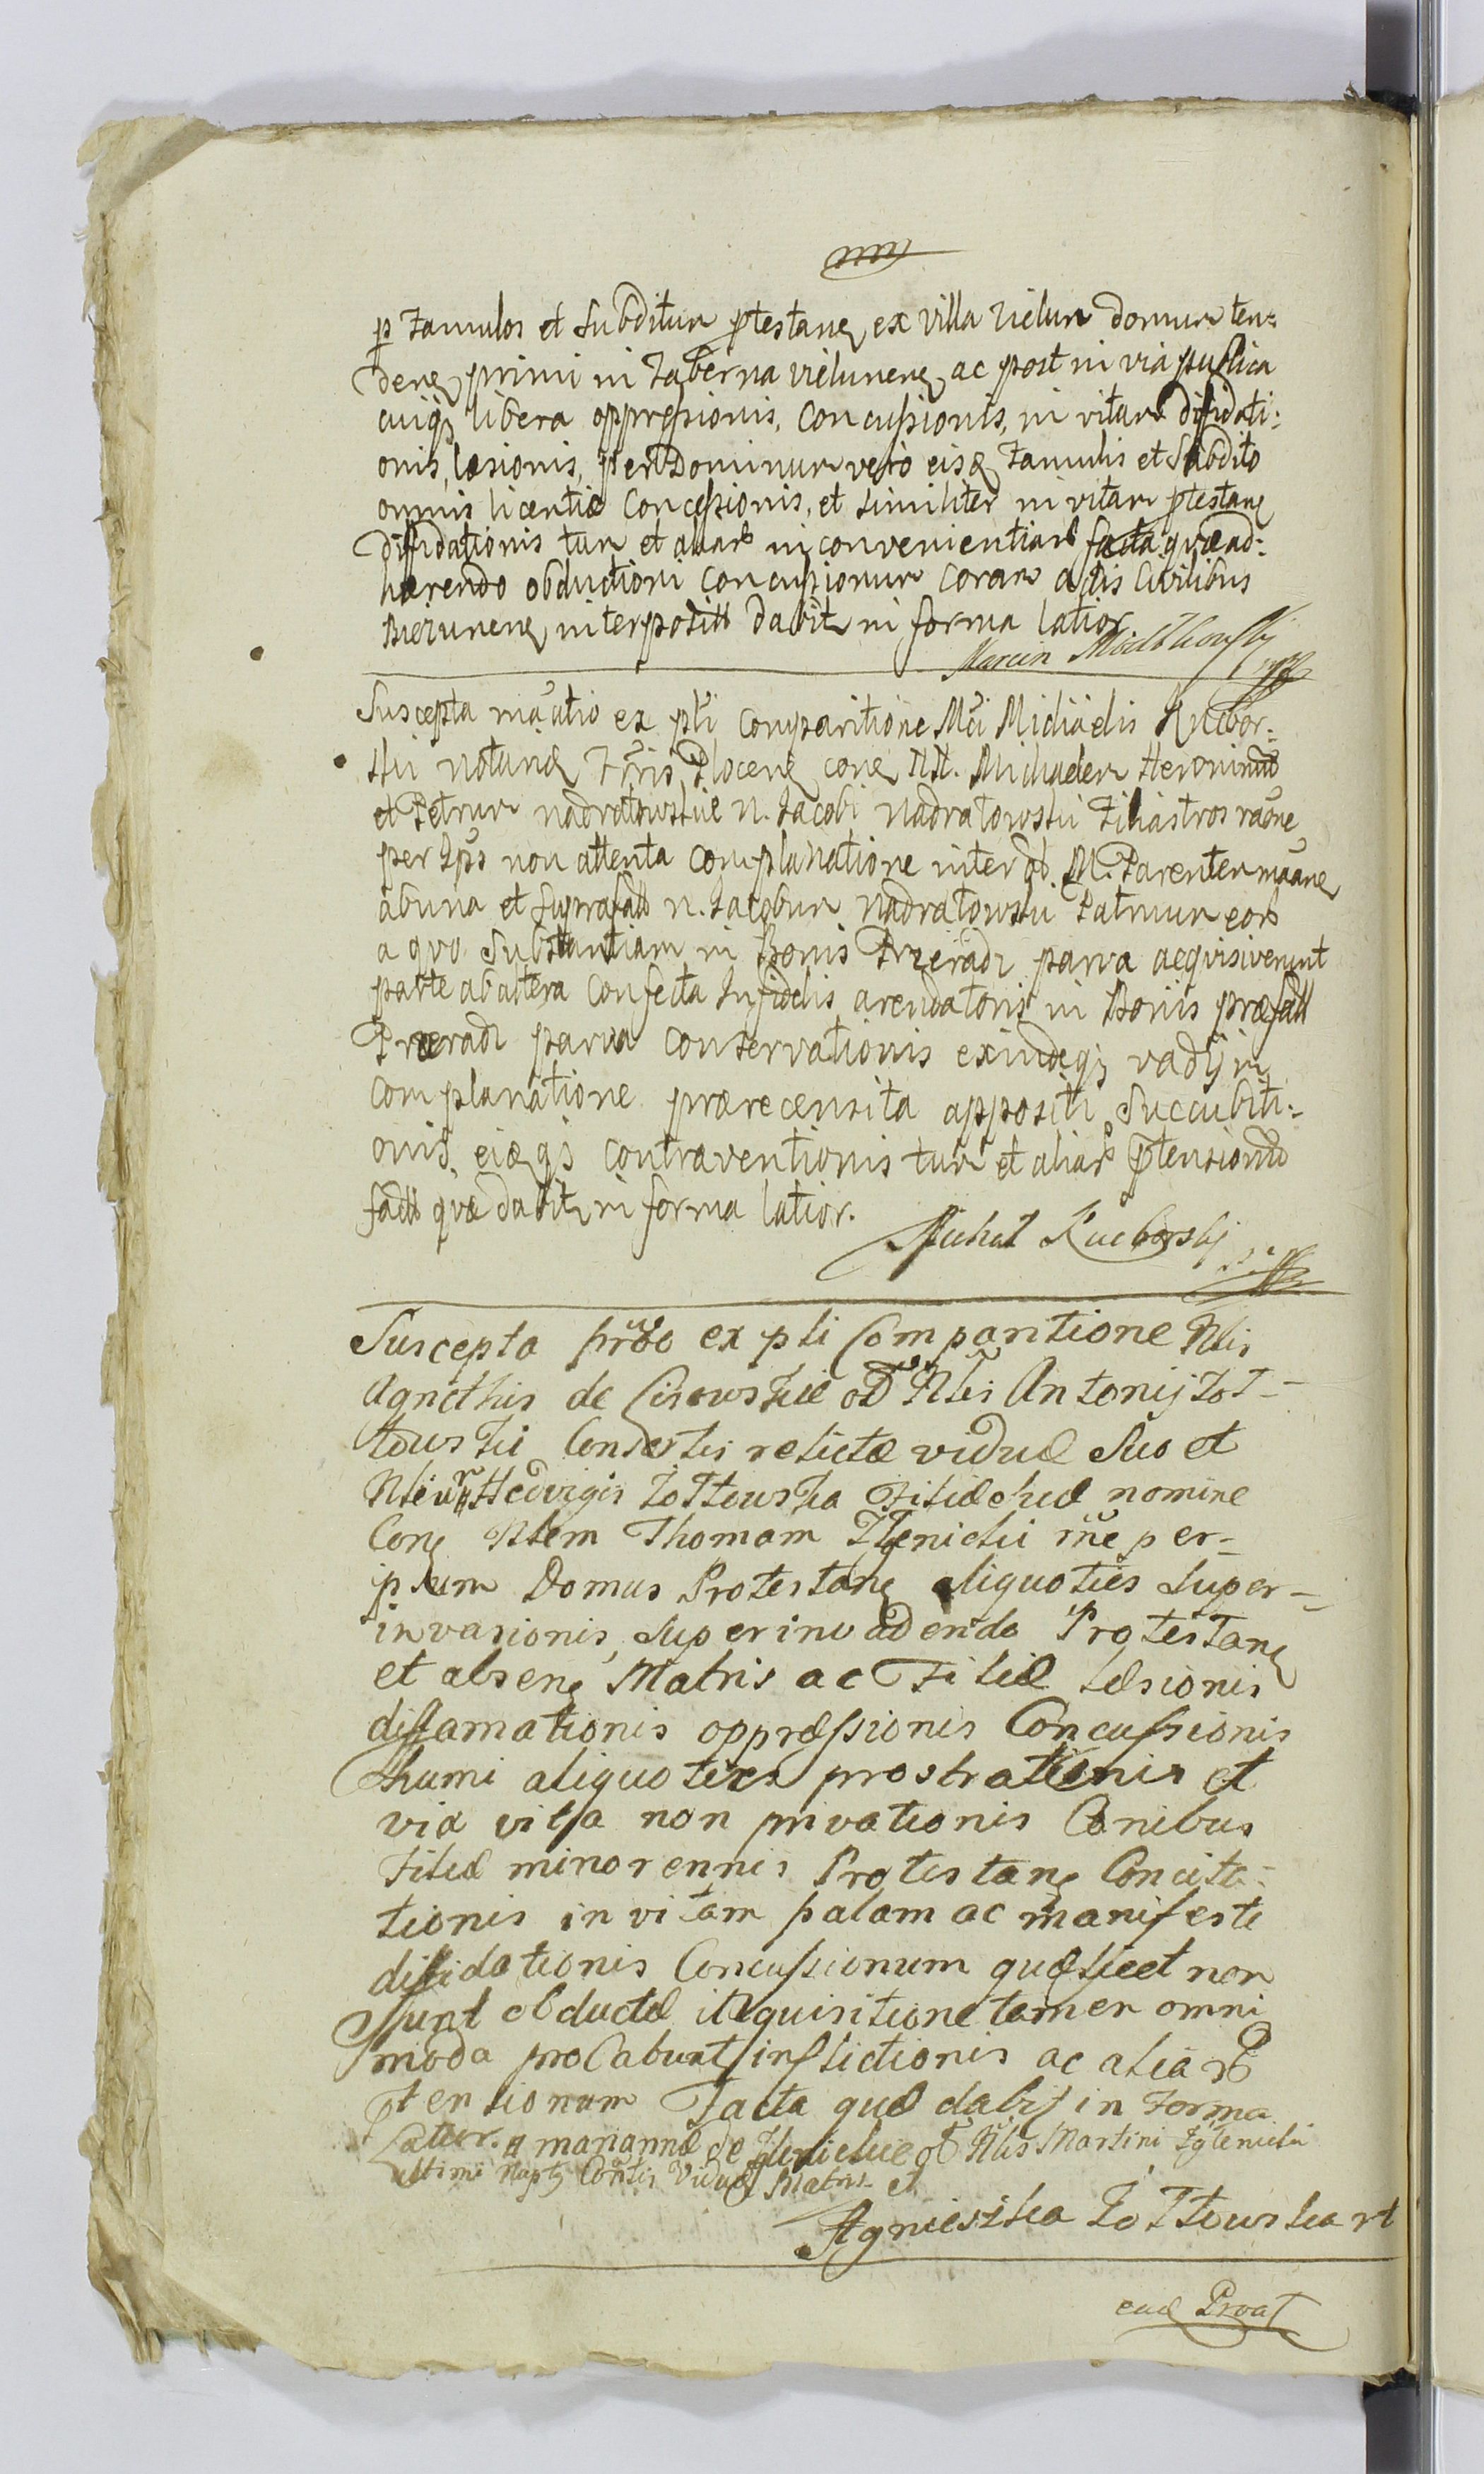 p Famulos et Subditum ptestane ex villa Vielun domum ten=
dene primi in Taberna vielunene ac post in via publica
cuiq libera oppressionis, Concussionis, in vitam diffidati=
onis, læsionis, per Dominum vero eisd Famulis et Subdito
omnis licentiæ Concessionis, et Similiter in vitam ptestane
diffidationis tum et aliar inconvenientiar facta quæ ad=
hærendo obductioni Concussionum Coram actis Civilibus
interposit dabit in forma latior.
Marcin
Suscepta ma͠atio ex pti Comparitione Mci Michaelis Kucbor=
skii Notarii Plocene cone NN. Michaelem Heronimum
et Petrum Nadratowskie N. Jacobi Nadratowskii Filiastros raõne
per Ips non attenta Complanatione inter od. M. Parentem maane
ab una et Suprafatt N. Jacobum Nadratowski Patruum eor
a quo Substantiam in Bonis Przeradz parva acquisiverunt
parte ab altera Confecta Infidelis arendatoris in Boniis præfatt
Przeradz parva Conservationis exindeq vadij in
Complanatione prærecensita appositi Succubiti=
onis eiæqs Contraventionis tum et aliar ptensionum
fact quæ dabit in forma latior.
Michał Kucborskj
Suscepta ex pti Comparitione Nlis
Agnethis de Cisowskie od Nlis Antonij Zoł=
towskii Consortis relictæ viduæ Suo et
Hedvigis Zołtowska Filiæ nomine
Cone Nlem Thomam Zglenicki rñe per=
ipsum Domus Protestane aliquoties Super=
invasionis, Superinvadendo Protestane
et absene Matris ac Filiæ læsionis
diffamationis oppræssionis Concussionis
humi aliquoties prostrationis et
vix vita non privationis Canibus
Filiæ minorennis Protestane Concita=
tionis in vitam palam ac manifeste
diffidationis Concussionum quæ licet non
sunt obductæ inquisitione tamen omni
moda probabunt inflictionis ac aliar
ptensionum Facta quæ dabit in Forma
Latior. # mariannæ de Zglenickie od Nlis Martini Zglenicki
ultimi Nupty Viduæ Matris et
Agnieszka Zołtowska
ead Proat